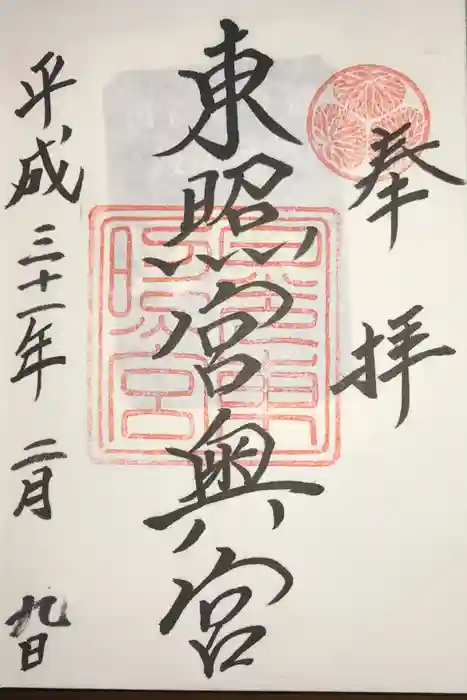 奉拝
東照宮奥宮
平成三十一年二月九日